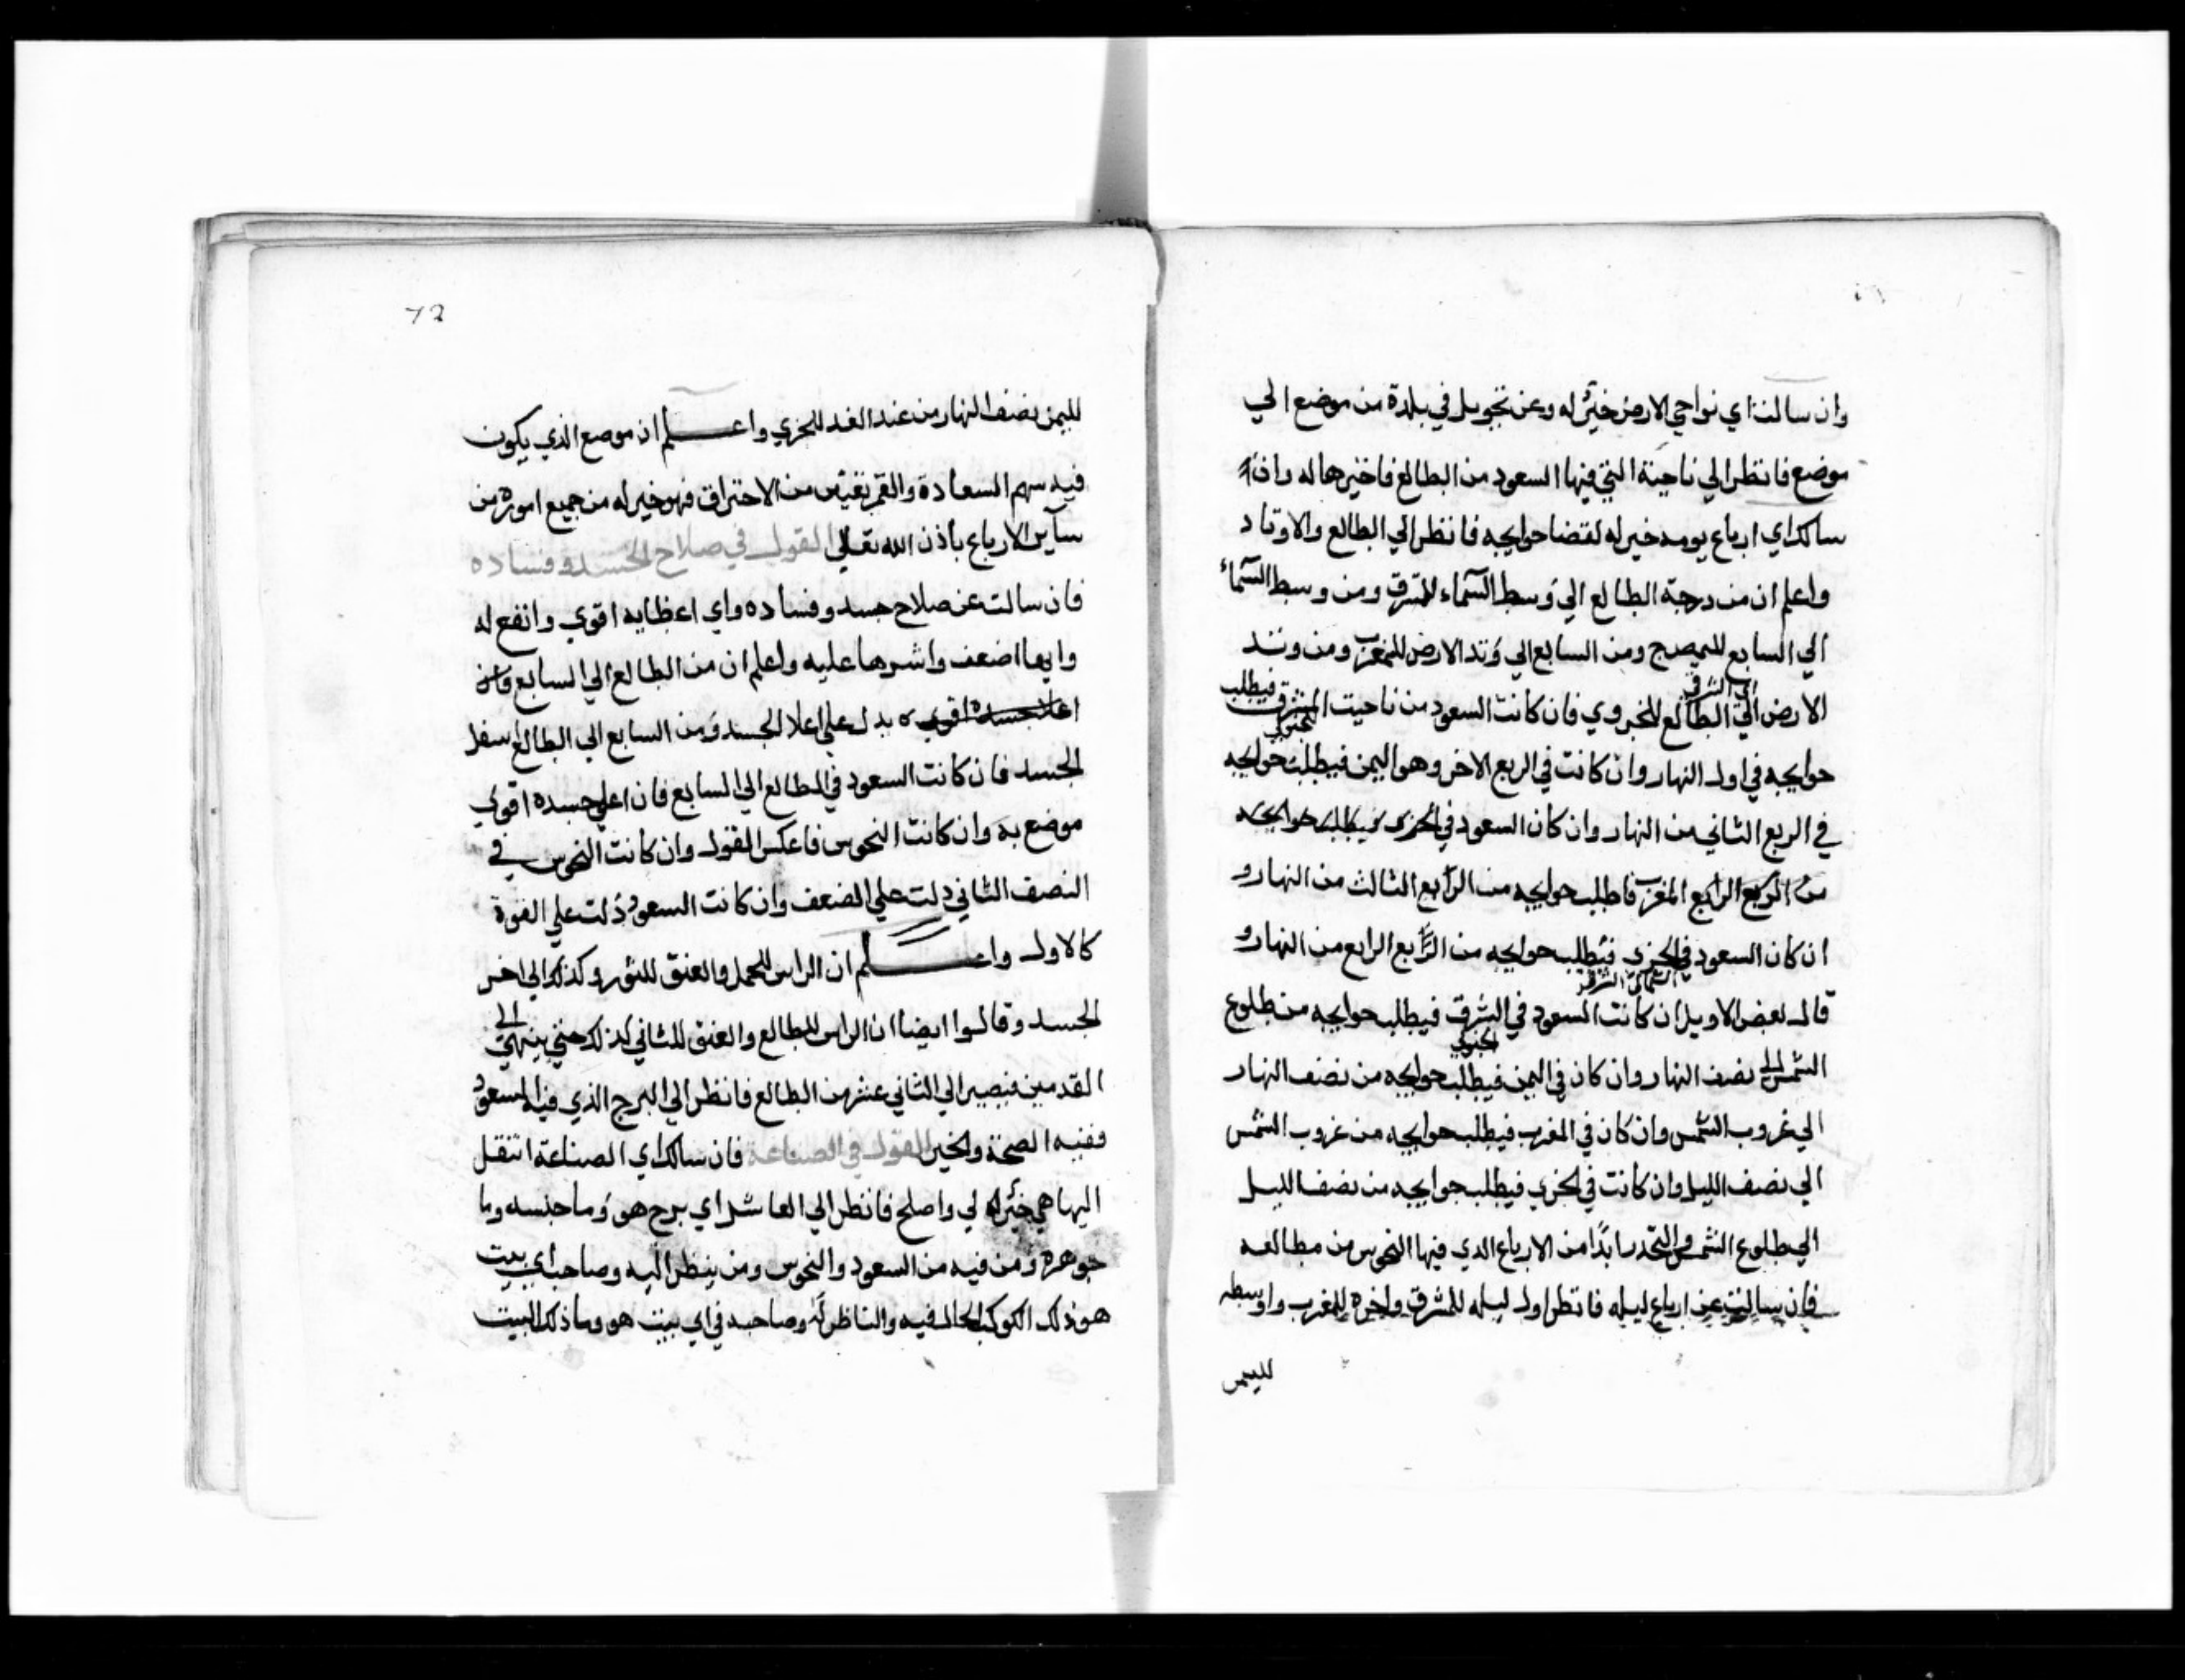 وان سالت اي نواحي الارض خير له وعن تحويل في بلدة من موضع الي
موضع فانظر الي ناحية التي فيها السعود من الطالع فاخترها له وان
سالك اي ارباع يومه خير له لقضا حوايجه فانظر الي الطالع والاوتاد
واعلم ان من درجة الطالع الي وسط السماء للشرق ومن وسط السماء
الي السابع لليمن ومن السابع الي وتد الارض للمغرب ومن وتد
الارض الي الطالع للجروي فان كانت السعود من ناحيت المشرق فيطلب
حوايجه في اول النهار وان كانت في الربع الاخر وهو اليمن فيطلب حوايجه
في الربع الثاني من النهار وان كان السعود في الجزي فيطلب حوايجه
من الربع الرابع المغرب فاطلب حوايجه من الرابع الثالث من النهار و
ان كان السعود في الجزي فيطلب حوايجه من الرابع الرابع من النهار و
قال بعض الاويل ان كانت السعود في الشرق فيطلب حوايجه من طلوع
الشمس الي نصف النهار وان كان في اليمن فيطلب حوايجه من نصف النهار
الي غروب الشمس وان كان في المغرب فيطلب حوايجه من غروب الشمس
الي نصف الليل وان كانت في الجزي فيطلب حوايجه من نصف الليل
الي طلوع الشمس والتحدر ابدا من الارباع الذي فيها النحوس من مطالعه
فان سالت عن ارباع ليله فانظر اول ليله للشرق واخره للمغرب واوسطه
لليمن
72
لليمن نصف النهار من عند الغد للجزي واعلم ان موضع الذي يكون
فيه سهم السعادة والقمر نقيين من الاحتراق فهو خير له من جميع اموره من
ساير الارباع باذن الله تعالي القول في صلاح الجسد وفساده
فان سالت عن صلاح جسد وفساده واي اعظايه اقوي وانفع له
وايها اضعف واشرها عليه واعلم ان من الطالع الي السابع فان
اعلا جسده اقوي يدل علي اعلا الجسد ومن السابع الي الطالع اسفل
الجسد فان كانت السعود في الطالع الي السابع فان اعلي جسده اقوي
موضع به وان كانت النحوس فاعكس القول وان كانت النحوس في
النصف الثاني دلت علي الضعف وان كانت السعود دلت علي القوة
كالاول واعلم ان الراس للحمل والعنق للثور وكذلك الي اخر
الجسد وقالوا ايضا ان الراس للطالع والعنق للثاني كذلك حتي ينتهي الي
القدمين فيصير الي الثاني عشر من الطالع فانظر الي البرج الذي فيه السعود
ففيه الصحة والخير القول في الصناعة فان سالك اي الصناعة انتقل
اليها هي خير له لي واصلح فانظر الي العاشر اي برج هو وما جنسه وما
جوهره ومن فيه من السعود والنحوس ومن ينظر اليه وصاحب اي بيت
هو ذلك الكوكب الحال فيه والناظر له وصاحبه في اي بيت هو وما ذلك البيت